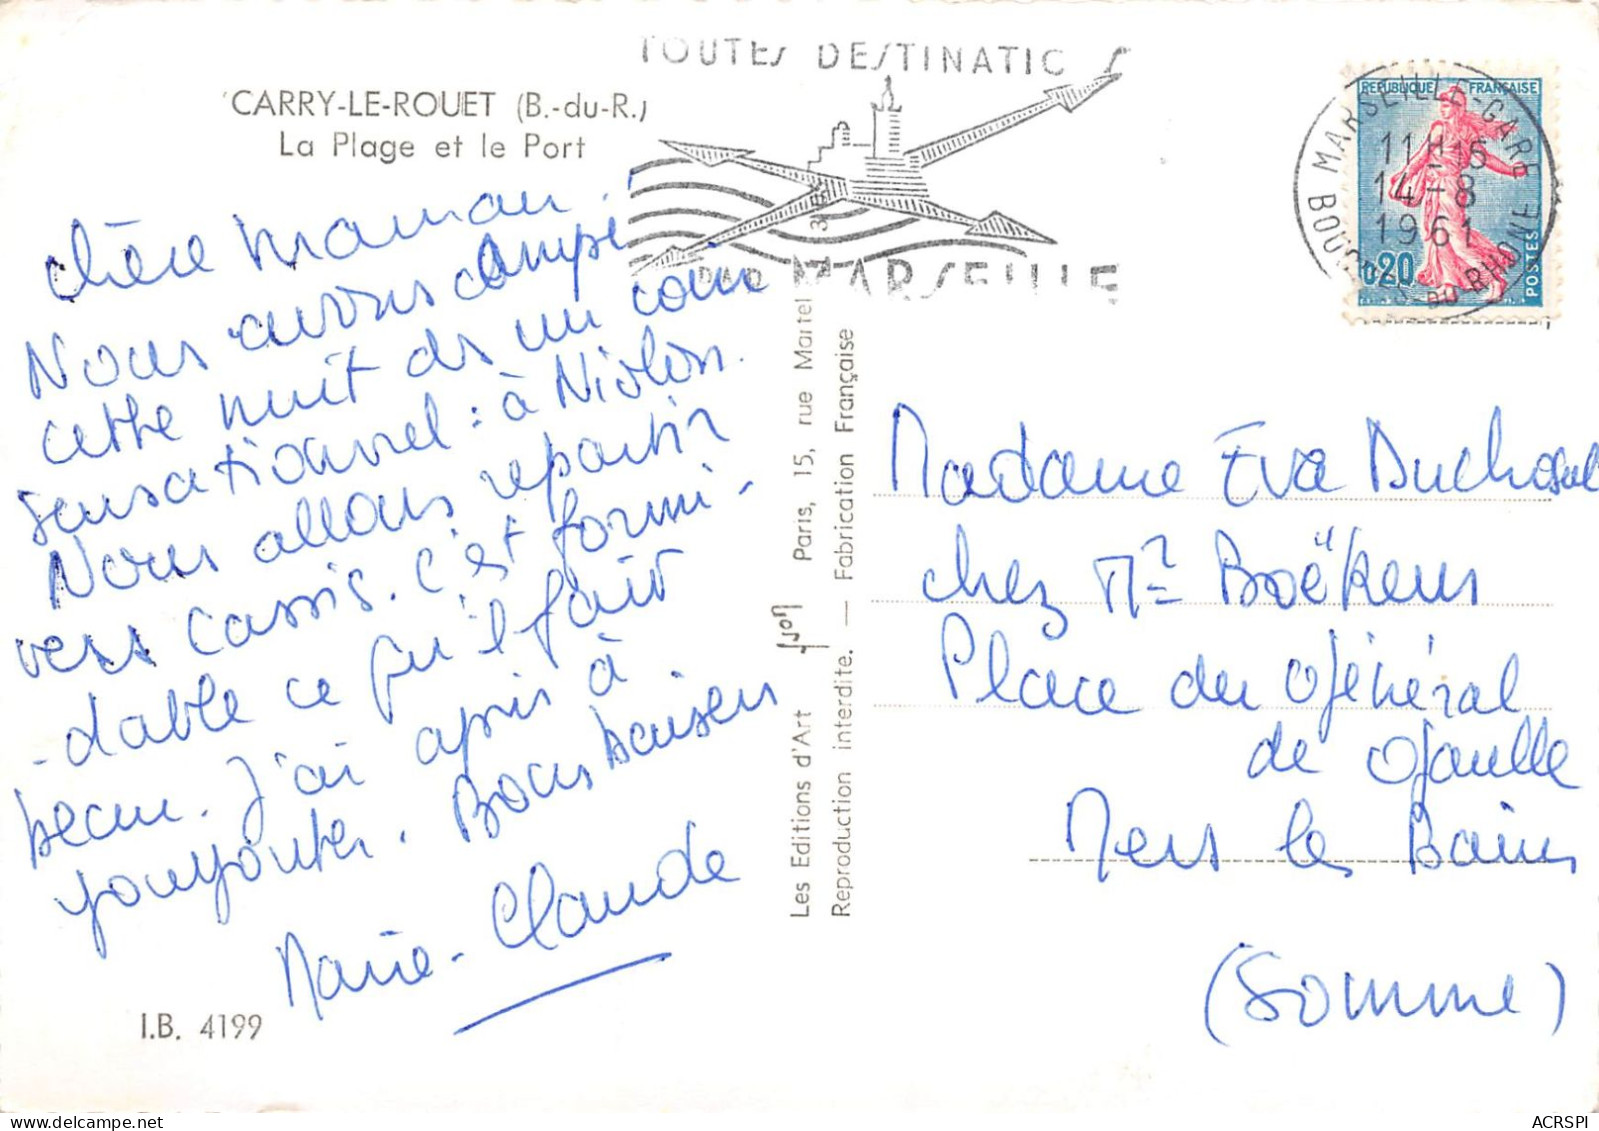 CARRY-LE-ROUET (B.-du-R.)
La Plage et le Port
TOUTES DESTINATIO S
PAR MARSEILLE
MARSEILLE-GARE
11H15
14-8
1961
BOUCHES-DU-RHONE
REPUBLIQUE FRANÇAISE
0,20
POSTES
chère Maman,
Nous avons campé
cette nuit ds un coin
sensationnel : à Niolon.
Nous allons repartir
vers Cassis. C'est formi-
-dable ce qu'il fait
beau. J'ai appris à
youyouter. Bons baisers
Marie-Claude
I.B. 4199
Les Editions d'Art Yvon Paris, 15, rue Martel
Reproduction interdite. — Fabrication Française
Madame Eva Duchosal
chez Mr Boëkens
Place du Général
de Gaulle
Mers les Bains
(Somme)
ACRSPI